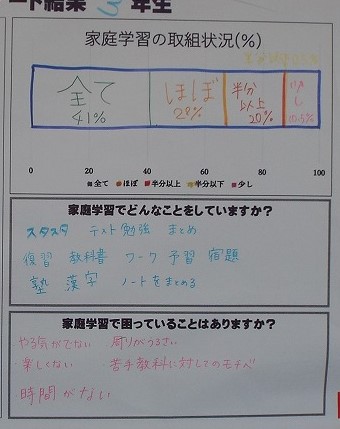 ート結果 3年生
家庭学習の取組状況(%)
全て ほぼ 半分 少
41% 以上 し
20%
0 20 40 60 80 100
全て ほぼ 半分以上 半分以下 少し
家庭学習でどんなことをしていますか?
スタスタ テスト勉強 まとめ
復習 教科書 ワーク 予習 宿題
塾 漢字 ノートをまとめる
家庭学習で困っていることはありますか?
やる気がでない 周りがうるさい
楽しくない 苦手教科に対してのモチベ
時間がない